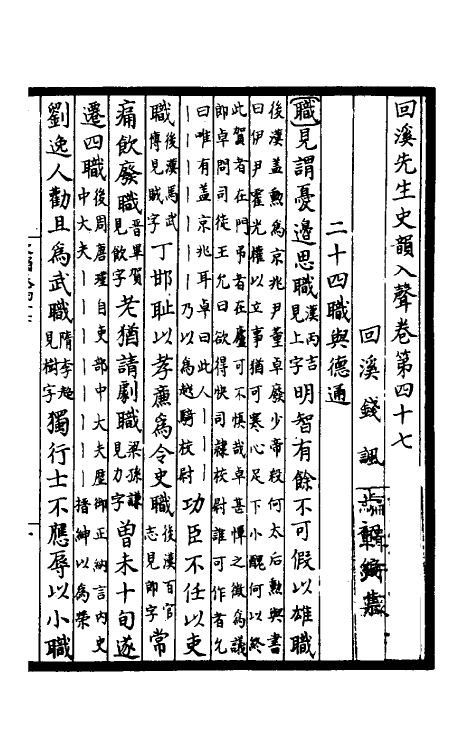 回溪先生史韻入聲卷第四十七
回溪錢諷
二十四職與德通
職見謂憂邊思職漢丙吉見上字明智有餘不可假以雄職
後漢盖勲為京兆尹董卓廢少帝殺何太后勲與書
曰伊尹霍光權以立事猶可寒心足下小醜何以終
此賀者在門吊者在廬可不慎哉卓甚憚之徵為議
郎卓問司徒王允曰欲得快司隸校尉誰可作者允
曰唯有盖京兆耳卓曰此人丨丨丨丨
丨丨丨丨乃以為越騎校尉功臣不任以吏
職後漢馬武傳見賊字丁邯耻以孝廉為令史職後漢百官志見郎字常
痛飲廢職晉畢賀見飲字老猶請劇職梁孫謙見力字曽未十旬遂
遷四職後周唐瑾自吏部中大夫歴御正納言内史中大夫丨丨丨丨丨丨搢紳以為榮
劉逸人勸且為武職隋李超見樹字獨行士不應辱以小職